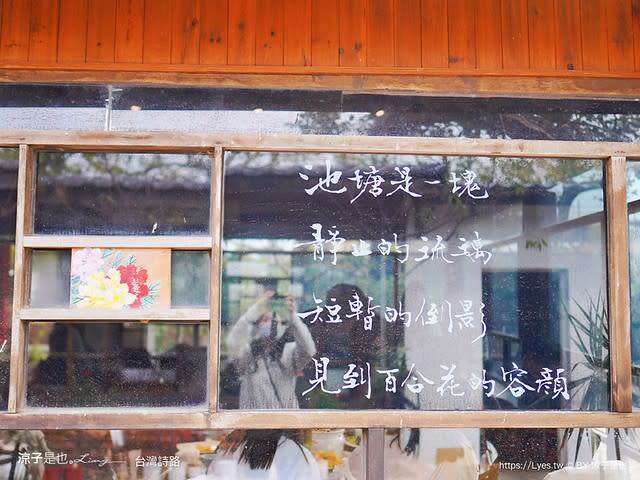 池塘是一塊
靜止的琉璃
短暫的倒影
見到百合花的容顏
涼子是也。 台灣詩路
https://Lyes.tw